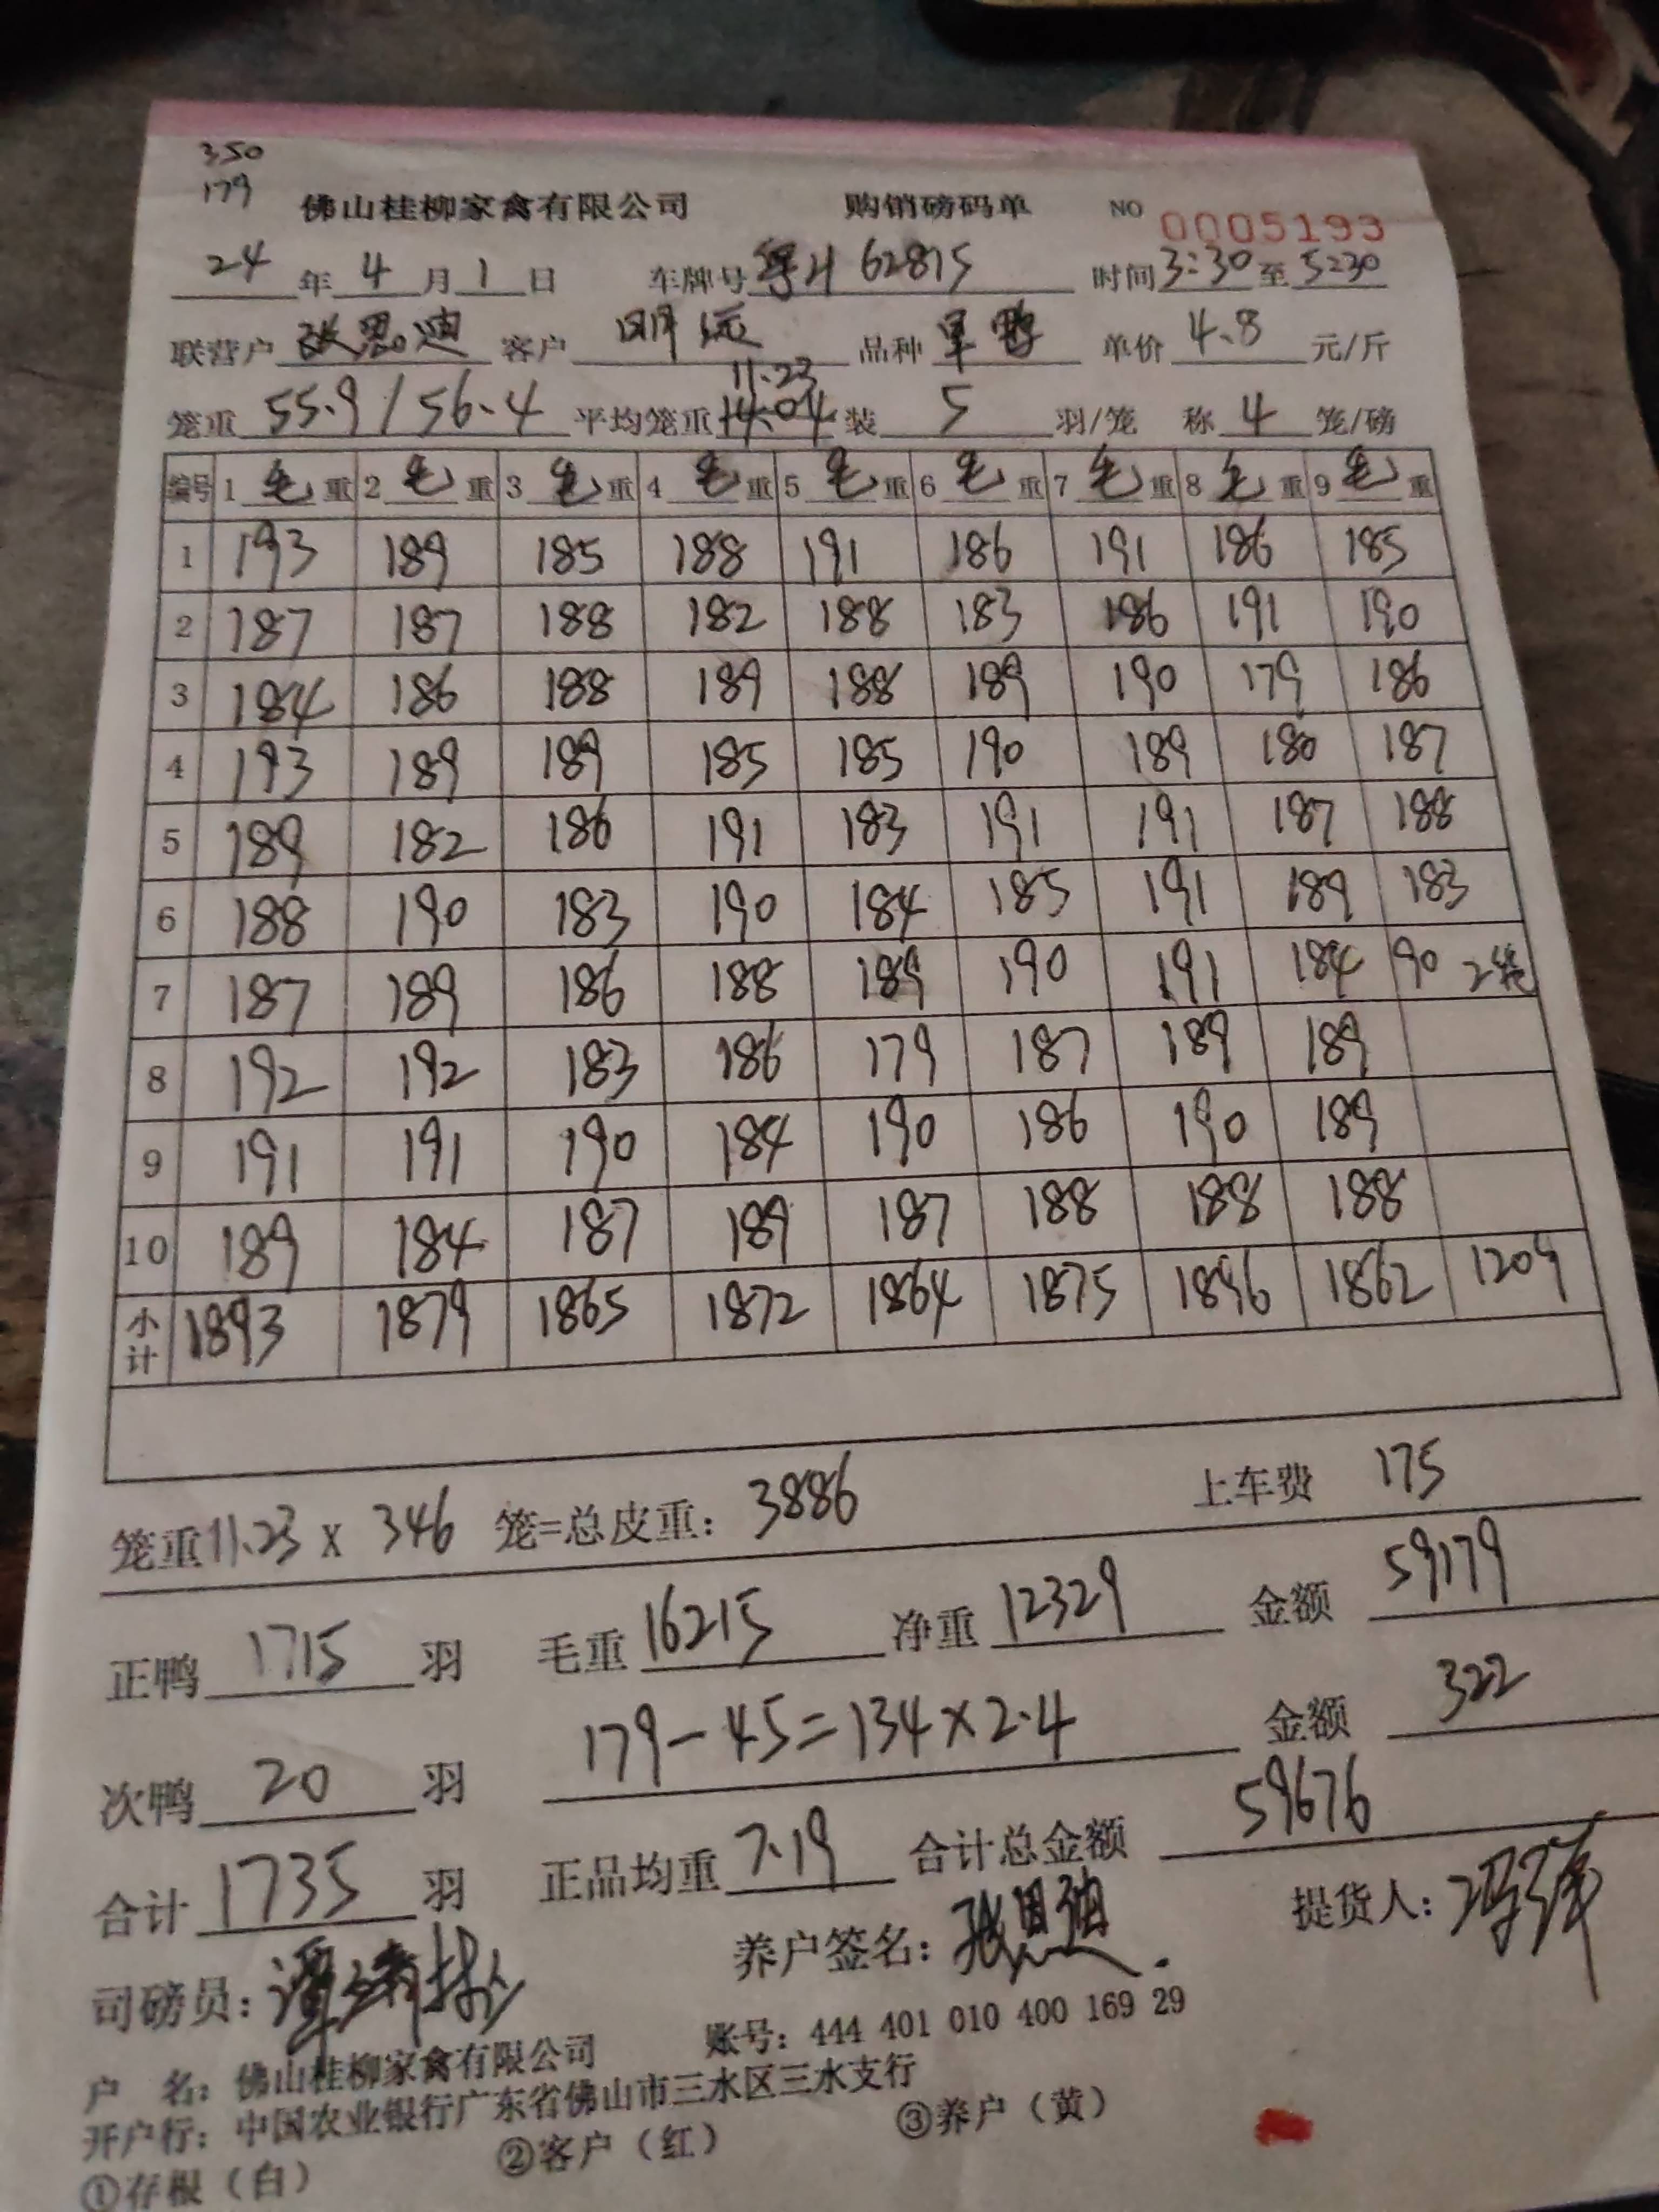 350
179
佛山桂柳家禽有限公司 购销磅码单 NO 0005193
24 年 4 月 1 日 车牌号 粤H 62815 时间 3:30 至 5:30
联营户 张思迪 客户 明远 品种 单价 4.8 元/斤
11.23
笼重 55.9 / 56.4 平均笼重 14.04 装 5 羽/笼 称 4 笼/磅
编号 1 毛 重 2 毛 重 3 毛 重 4 毛 重 5 毛 重 6 毛 重 7 毛 重 8 毛 重 9 毛 重
1 193 189 185 188 191 186 191 186 185
2 187 187 188 182 188 183 186 191 190
3 184 186 188 189 188 189 190 179 186
4 193 189 189 185 185 190 189 180 187
5 189 182 186 191 183 191 191 187 188
6 188 190 183 190 184 185 191 189 183
7 187 189 186 188 189 190 191 184 90 2笼
8 192 192 183 186 179 187 189 189
9 191 191 190 184 190 186 190 189
10 189 184 187 189 187 188 188 188
小计 1893 1879 1865 1872 1864 1875 1896 1862 1209
笼重 11.23 x 346 笼=总皮重: 3886 上车费 175
正鸭 1715 羽 毛重 16215 净重 12329 金额 59179
次鸭 20 羽 179-45=134×2.4 金额 322
合计 1735 羽 正品均重 7.19 合计总金额 59676
司磅员: 养户签名: 张思迪 提货人:
户 名: 佛山桂柳家禽有限公司 账号: 444 401 010 400 169 29
开户行: 中国农业银行广东省佛山市三水区三水支行
①存根（白） ②客户（红） ③养户（黄）